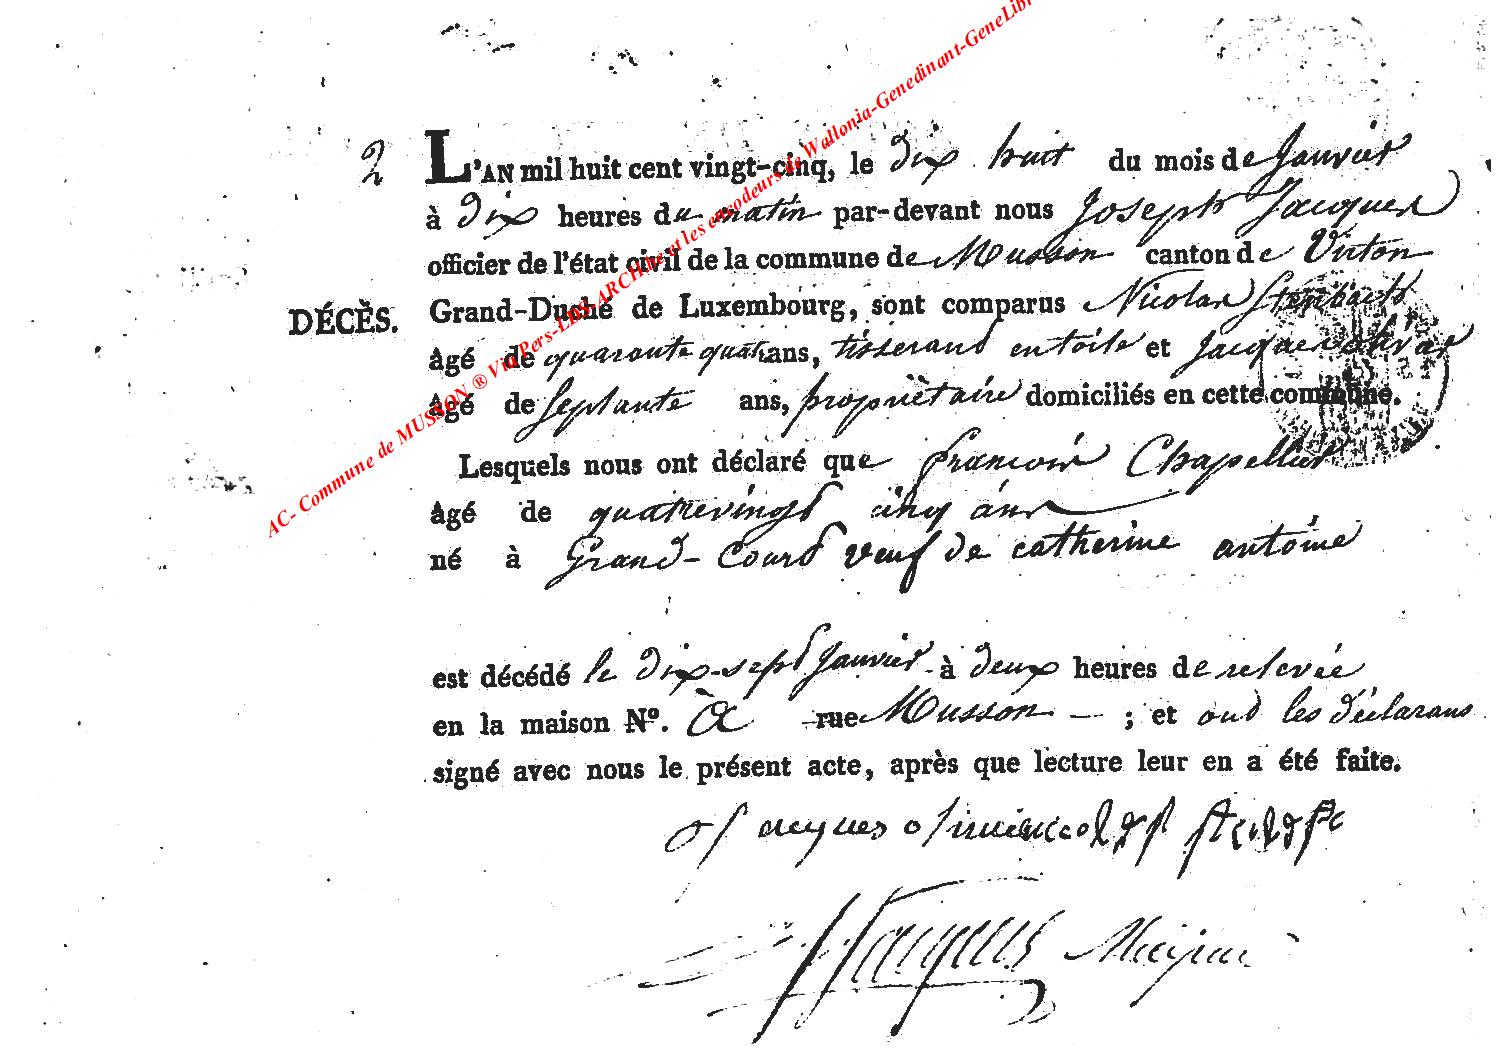 2 L'AN mil huit cent vingt-cinq, le dix huit du mois de Janvier
à dix heures du matin par-devant nous Joseph Jacques
officier de l'état civil de la commune de Musson canton de Virton
DÉCÈS. Grand-Duché de Luxembourg, sont comparus Nicolas
âgé de quarante quatr ans, tisserand en toile et Jacques
âgé de septante ans, propriètaire domiciliés en cette commune.
Lesquels nous ont déclaré que francois Chapellier
âgé de quatrevingt cinq ans
né à Grand-Court veuf de catherine antoine
est décédé le dix-sept Janvier à deux heures de relevée
en la maison N°. à rue Musson ; et ont les déclarans
signé avec nous le présent acte, après que lecture leur en a été faite.
Jacques
Jacques
AC- Commune de MUSSON ® Vin Pers-LDS-ARCHive et les encodeurs de Wallonia-Genedinant-GeneLibr